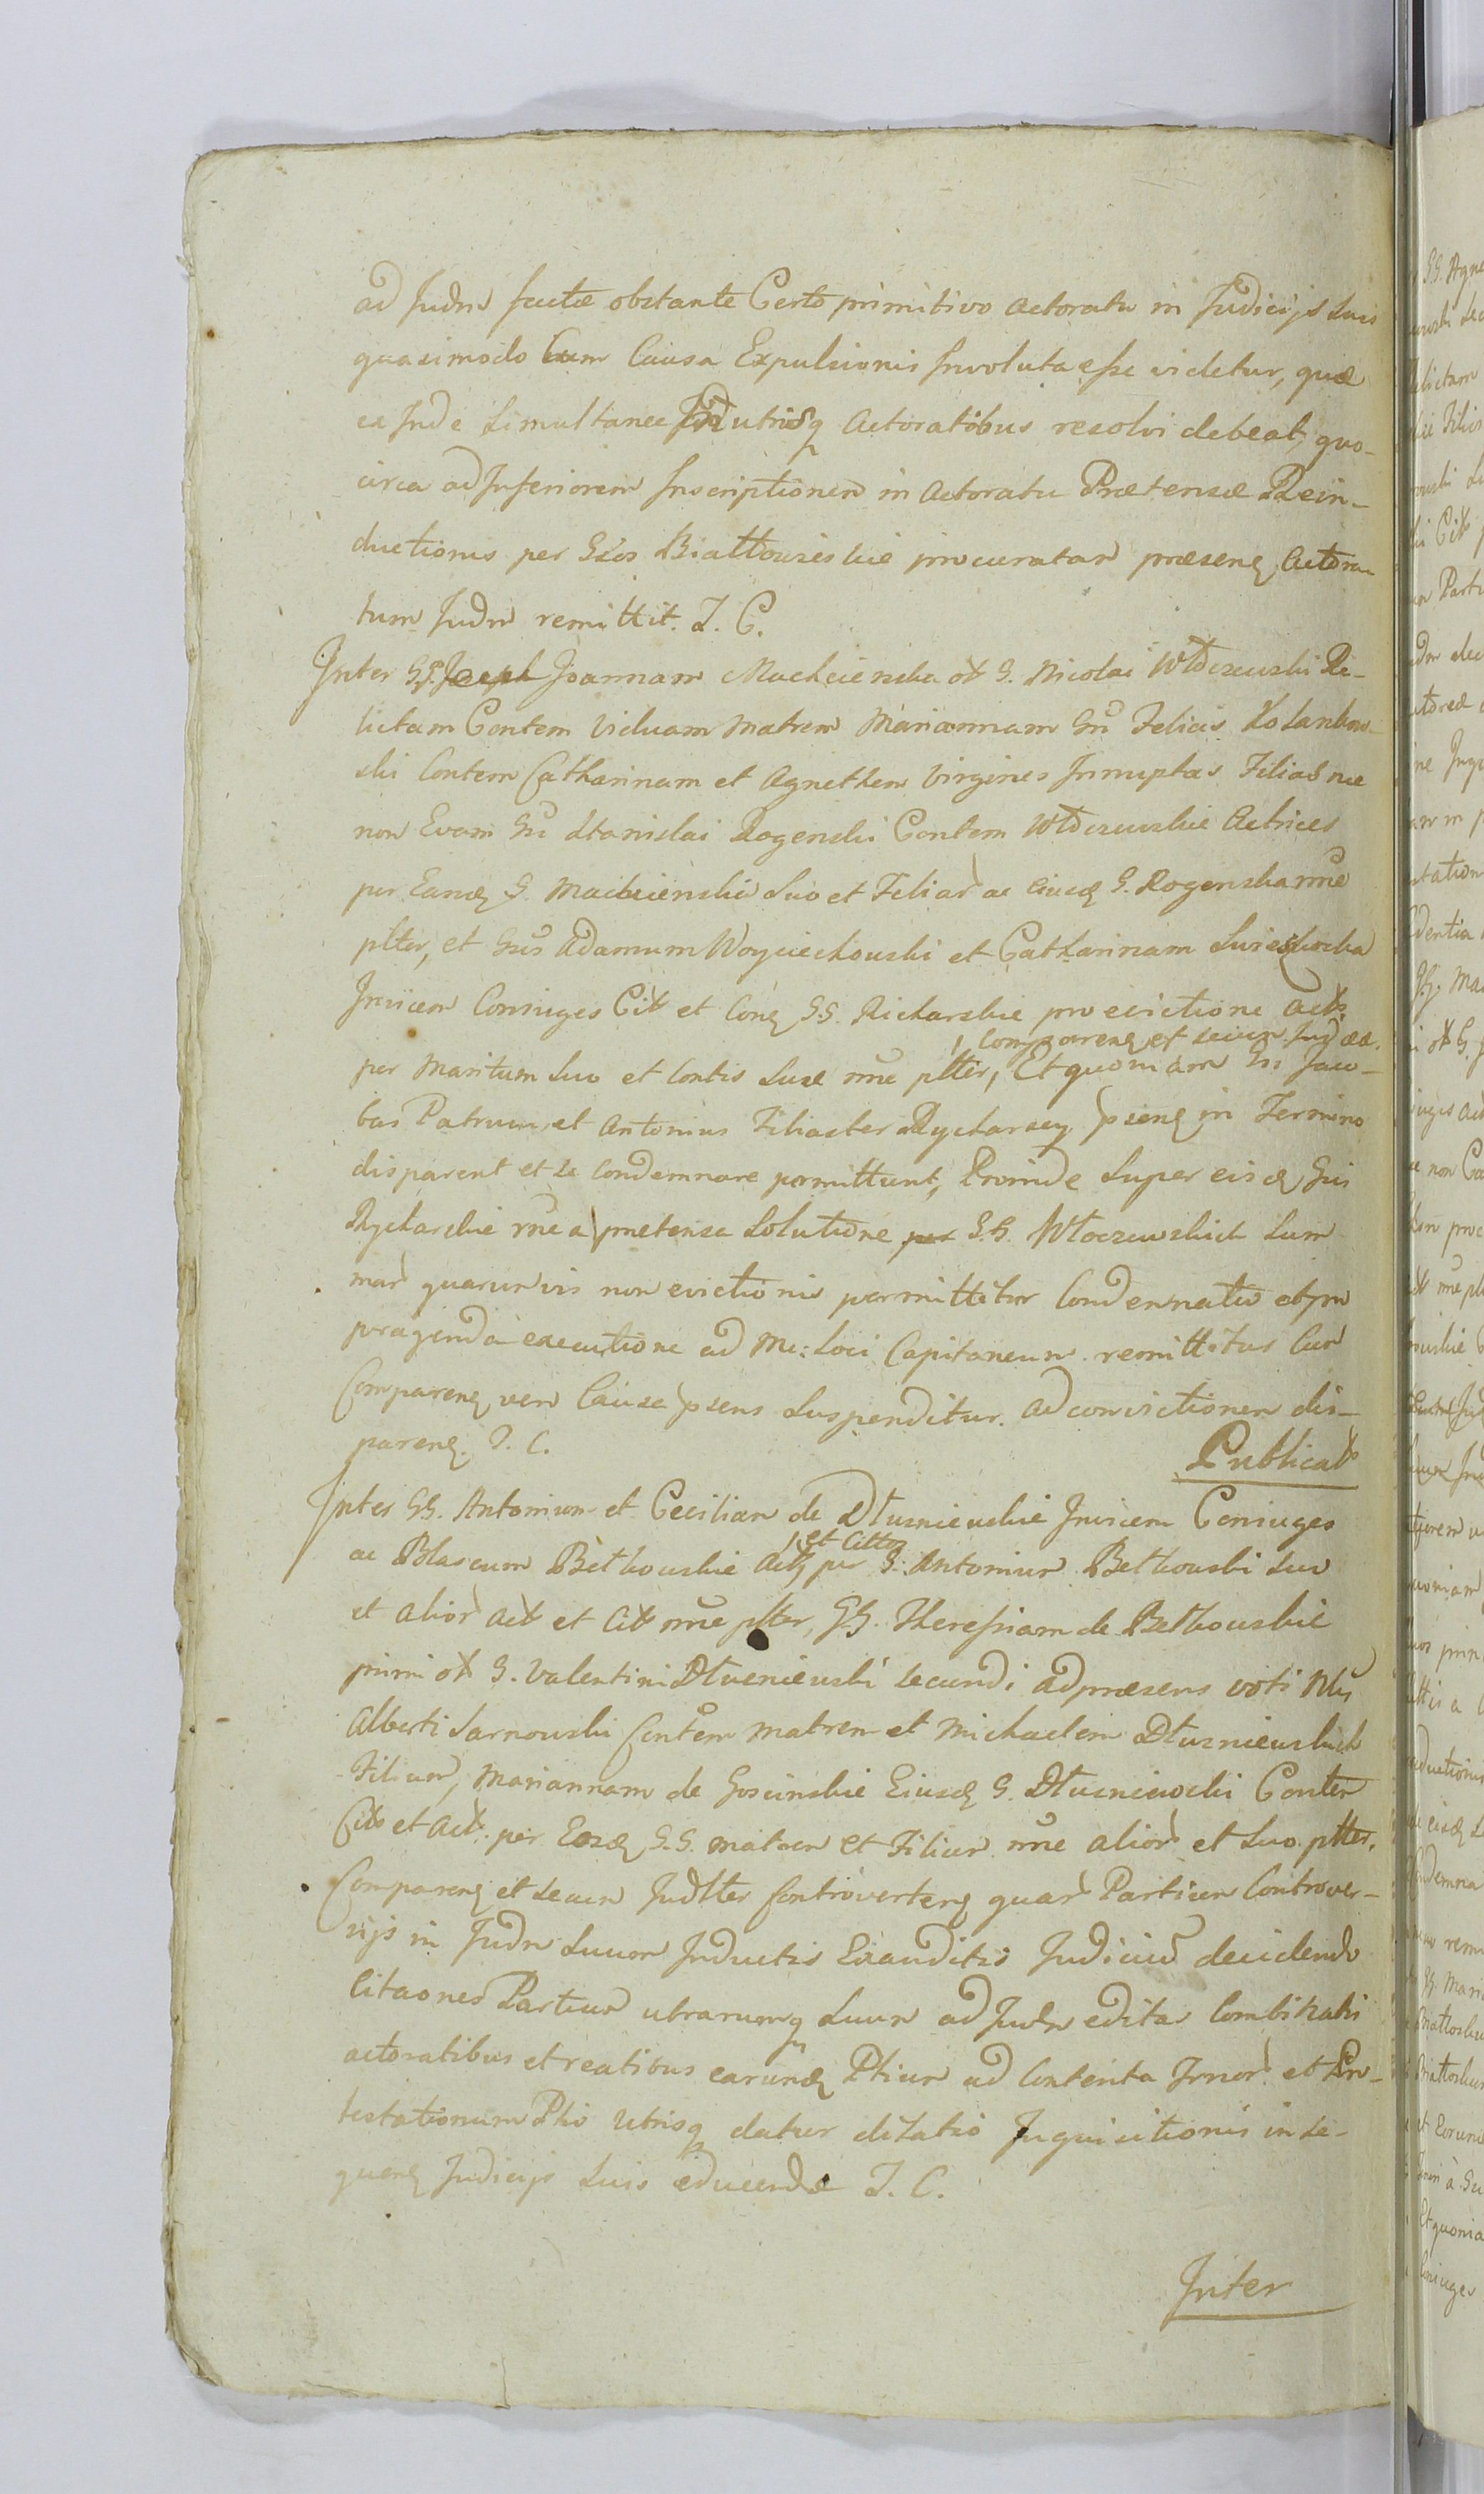 ad Judm factæ obstante Certo primitivo actoratu in Judicijs suis
quasimodo Cum Causa Expulsionis Involuta esse videtur, quæ
ex Inde simultanee utrisq actoratibus resolvi debeat, quo-
circa ad Inferiorem Inscriptionem in actoratu Prætensæ Rein-
ductionis per Białłowieskie procuratam præsenq Actora-
tum Judm remittit. J. C.
Inter GG Joannam Machcienska ox G. Nicolai Włoczewski Re-
lictam Contem Viduam matrem Mariannam Gn Felicis Kolankow-
ski Contem Catharinam et Agnethem Virgines Innuptas Filias nec
non Evam Gn Stanislai Rogenski Contem Włoczewskie Actrices
per Eandq G. Machcienska suo et Filiar ac Eiusdq G. Rogenska nne
plter, et Gnos Adamum Woyciechowski et Catharinam
Invicem Coniuges Citt et Conq GG. Richarskie pro evictione act.
comparenq et secum Jud
per Maritum suo et Contis suæ nne plter, Et quoniam Gn Jaco-
bus Patruus et Antonius Filiaster Rycharscy psenq in Termino
disparent et se Condemnare permittunt, Proinde super eisdq Gnis
Rycharskie rne a pretensa solutione per G.G. Włoczewskich sum
mar quarumvis non evictionis permittitur Condemnatio et pro
peragenda executione ad Me: Loci Capitaneum remittitur Cum
Comparenq vero Causa psens suspenditur. ad convictionem dis-
parenq. J. C.
Publicat
Inter GG. Antonium et Ceciliam de Dłuzniewskie Invicem Coniuges
et Cittos
ac Blascum Bethowskie Actq per G. Antonium Bethowski suo
et alior Act et Citt nne plter, GG. Theressiam de Bethowskie
primi ox G. Valentini Dłuzniewski secundi ad præsens voti Nlis
Alberti Sarnowski Contem matrem et Michaelem Dłuzniewskich
Filium, Mariannam de Goscinskie Eiusdq G. Dłuzniewski Contem
Citt et Act. per Eosdq G.G. matrem et Filium nne alior et suo plter.
Comparenq et secum Judlter Controvertenq quar Partium Controver-
sijs in Judm suum Inductis Exauditis Judicium decidendo
Citaones Partium utrarumq suum ad Judm editas Combinatis
actoratibus et reatibus earundq Ptium ad Contenta Irnor et Pro-
testationum Ptis Utrisq datur dilatio Inquisitionis in se-
quenq Judicijs suis educendæ J. C.
Inter